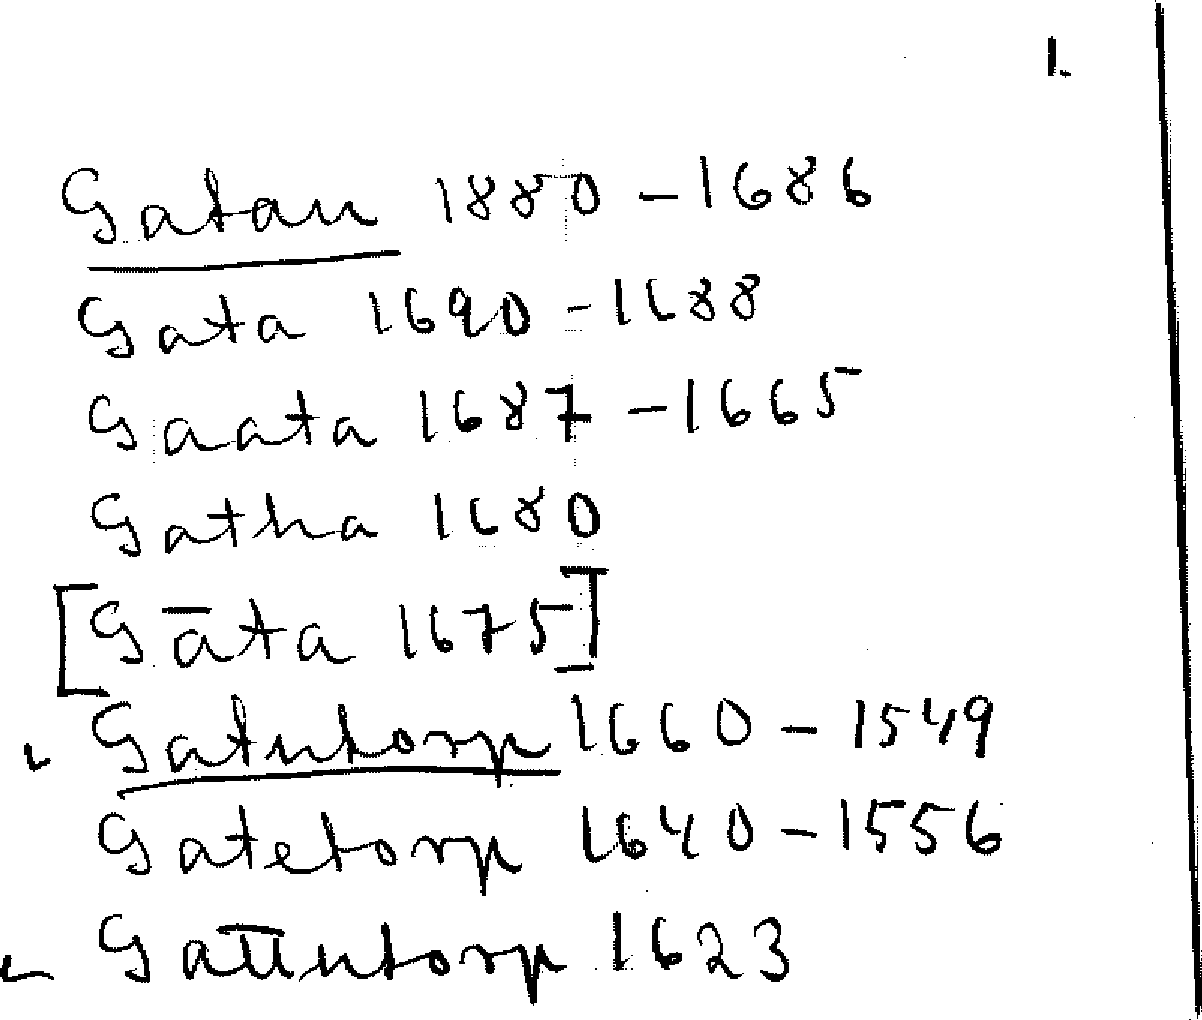 1.
Gatan 1880 - 1686
Gata 1690 - 1688
Gaata 1687 - 1665
Gatha 1680
[Gāta 1675]
Gatutorp 1660 - 1549
Gatetorp 1640 - 1556
1623